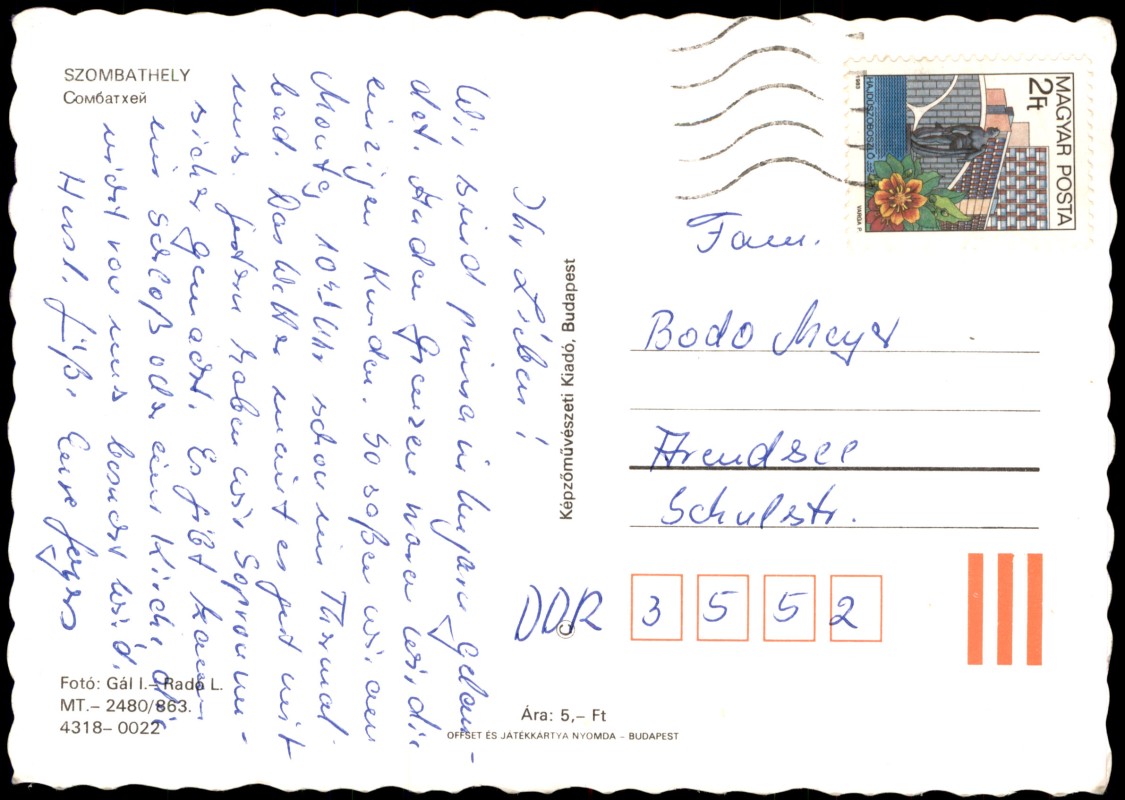 SZOMBATHELY
Сомбатхей
Ihr Lieben!
Wir sind prima in Ungarn gelan-
det. An der Grenze waren wir die
einzigen Kunden. So saßen wir am
Montg 10 Uhr schon im Termal
bad. Das Wetter meint es gut mit
uns. Gestern haben wir Sopron un-
sicher gemacht. Es gibt kaum
ein Schloß oder eine Kirche die
nicht von uns besucht wird.
Herzl. Grüße Eure
Képzőművészeti Kiadó, Budapest
MAGYAR POSTA
2Ft
HAJDÚSZOBOSZLÓ
1983
VARGA P.
Fam.
Bodo Meyer
Arendsee
Schulstr.
DDR 3552
©
Fotó: Gál I.– Radó L.
MT.– 2480/863.
4318– 0022
Ára: 5,– Ft
OFFSET ÉS JÁTÉKKÁRTYA NYOMDA – BUDAPEST